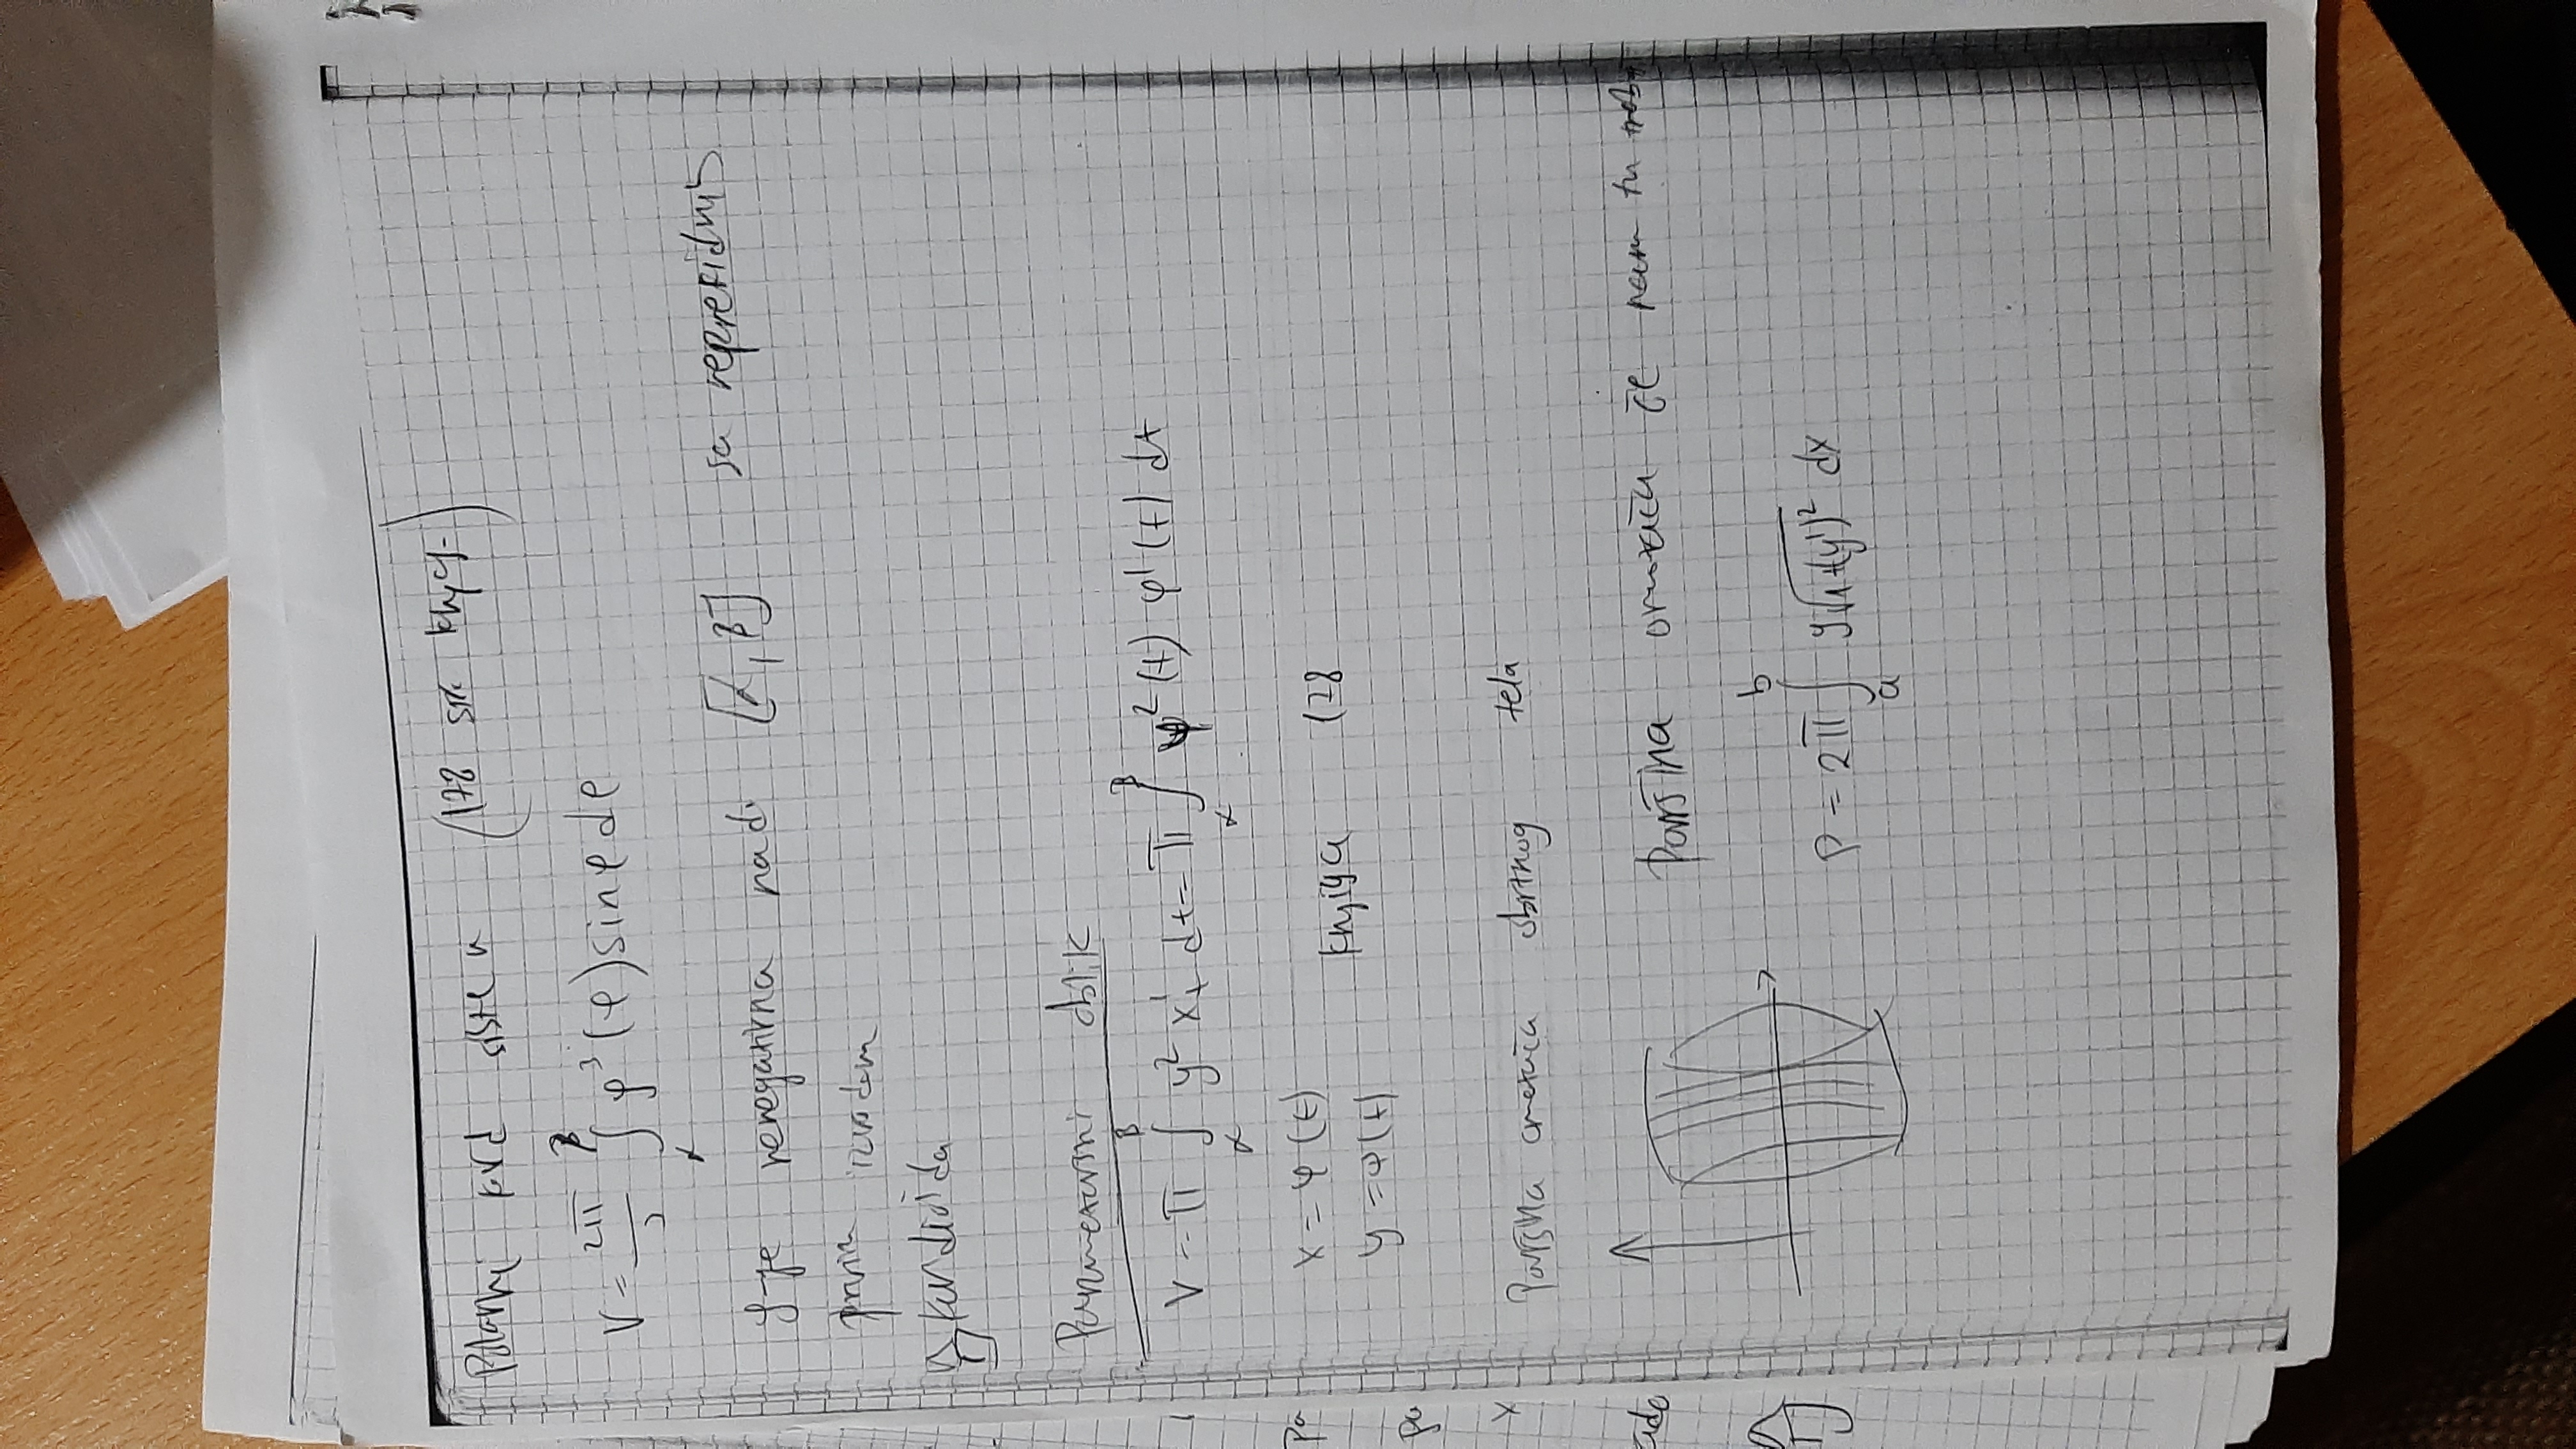 Polarni krd sistem (178 str knjige)
V = 2π/3 ∫_α^β ρ³(φ) sinφ dφ
ρ-je nenegativna nad [α, β] sa neprekidnim
prvim izvodom
kardioida
Parametarski oblik
V = π ∫_α^β y² x'_t dt = π ∫_α^β ψ²(t) φ'(t) dt
x = φ(t)
y = ψ(t)
knjiga 128
Površina omotača obrtnog tela
Površina omotača će nam tu treb
P = 2π ∫_a^b y√1+(y')² dx
pa
pa
x